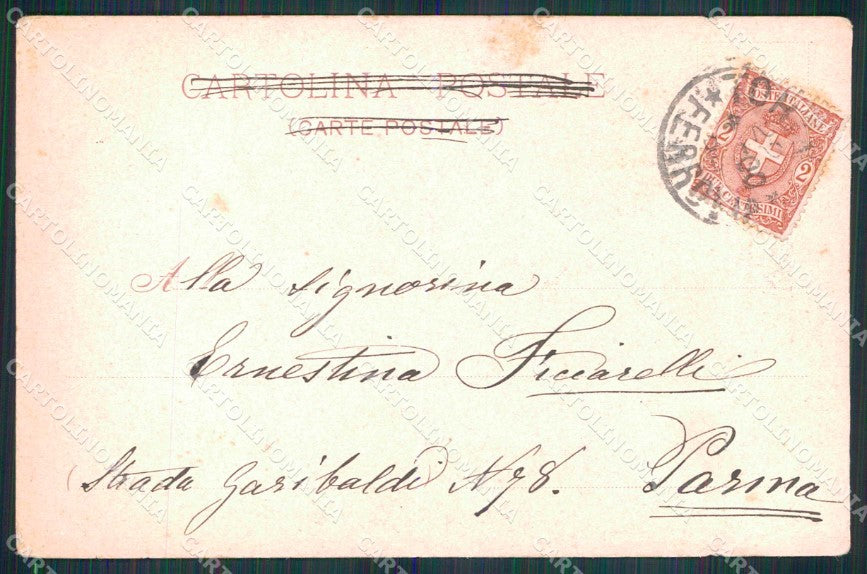 CARTOLINA POSTALE
(CARTE POSTALE)
POSTE ITALIANE
2 2
CENTESIMI
FERROVIA
Alla Signorina
Ernestina Ficciarelli
(Strada Garibaldi) N 78. Parma
CARTOLINOMANIA